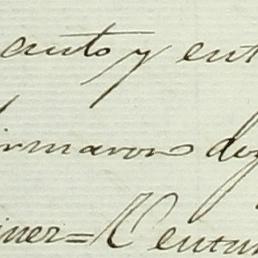 auto y ent
irmaron doy
iner=Ventur